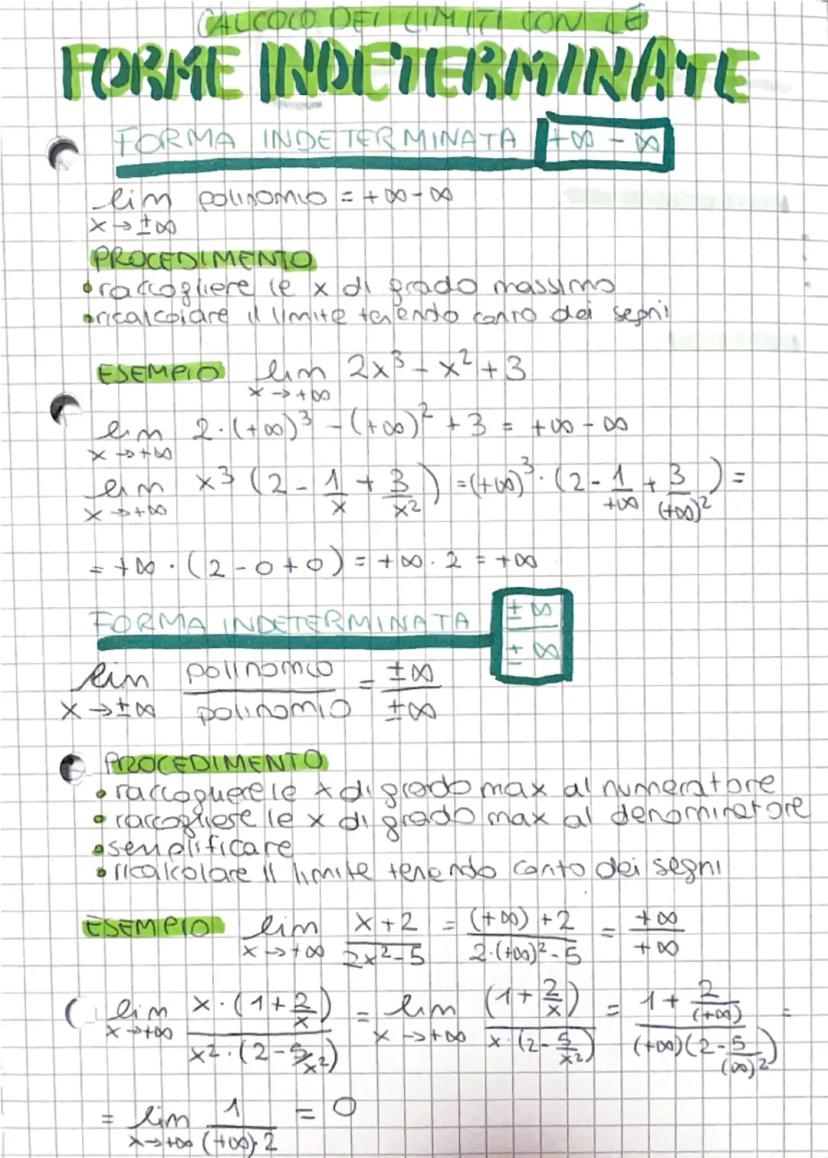 CALCOLO DEI LIMITI CON LE
FORME INDETERMINATE
FORMA INDETERMINATA +∞ - ∞
lim polinomio = +∞ - ∞
x → ±∞
PROCEDIMENTO
• raccogliere le x di grado massimo
• ricalcolare il limite tenendo conto dei segni
ESEMPIO lim 2x³ - x² + 3
x → +∞
lim 2·(+∞)³ - (+∞)² + 3 = +∞ - ∞
x → +∞
lim x³ (2 - 1/x + 3/x²) = (+∞)³ · (2 - 1/+∞ + 3/(+∞)²) =
x → +∞
= +∞ · (2 - 0 + 0) = +∞ · 2 = +∞
FORMA INDETERMINATA ±∞/±∞
lim polinomio/polinomio = ±∞/±∞
x → ±∞
PROCEDIMENTO
• raccogliere le x di grado max al numeratore
• raccogliere le x di grado max al denominatore
• semplificare
• ricalcolare il limite tenendo conto dei segni
ESEMPIO lim x+2/2x²-5 = (+∞)+2/2·(+∞)²-5 = +∞/+∞
x → +∞
lim x·(1+2/x)/x²·(2-5/x²) = lim (1+2/x)/x·(2-5/x²) = 1+2/(+∞)/(+∞)(2-5/(∞)²) =
x → +∞ x → +∞
= lim 1/(+∞)·2 = 0
x → +∞